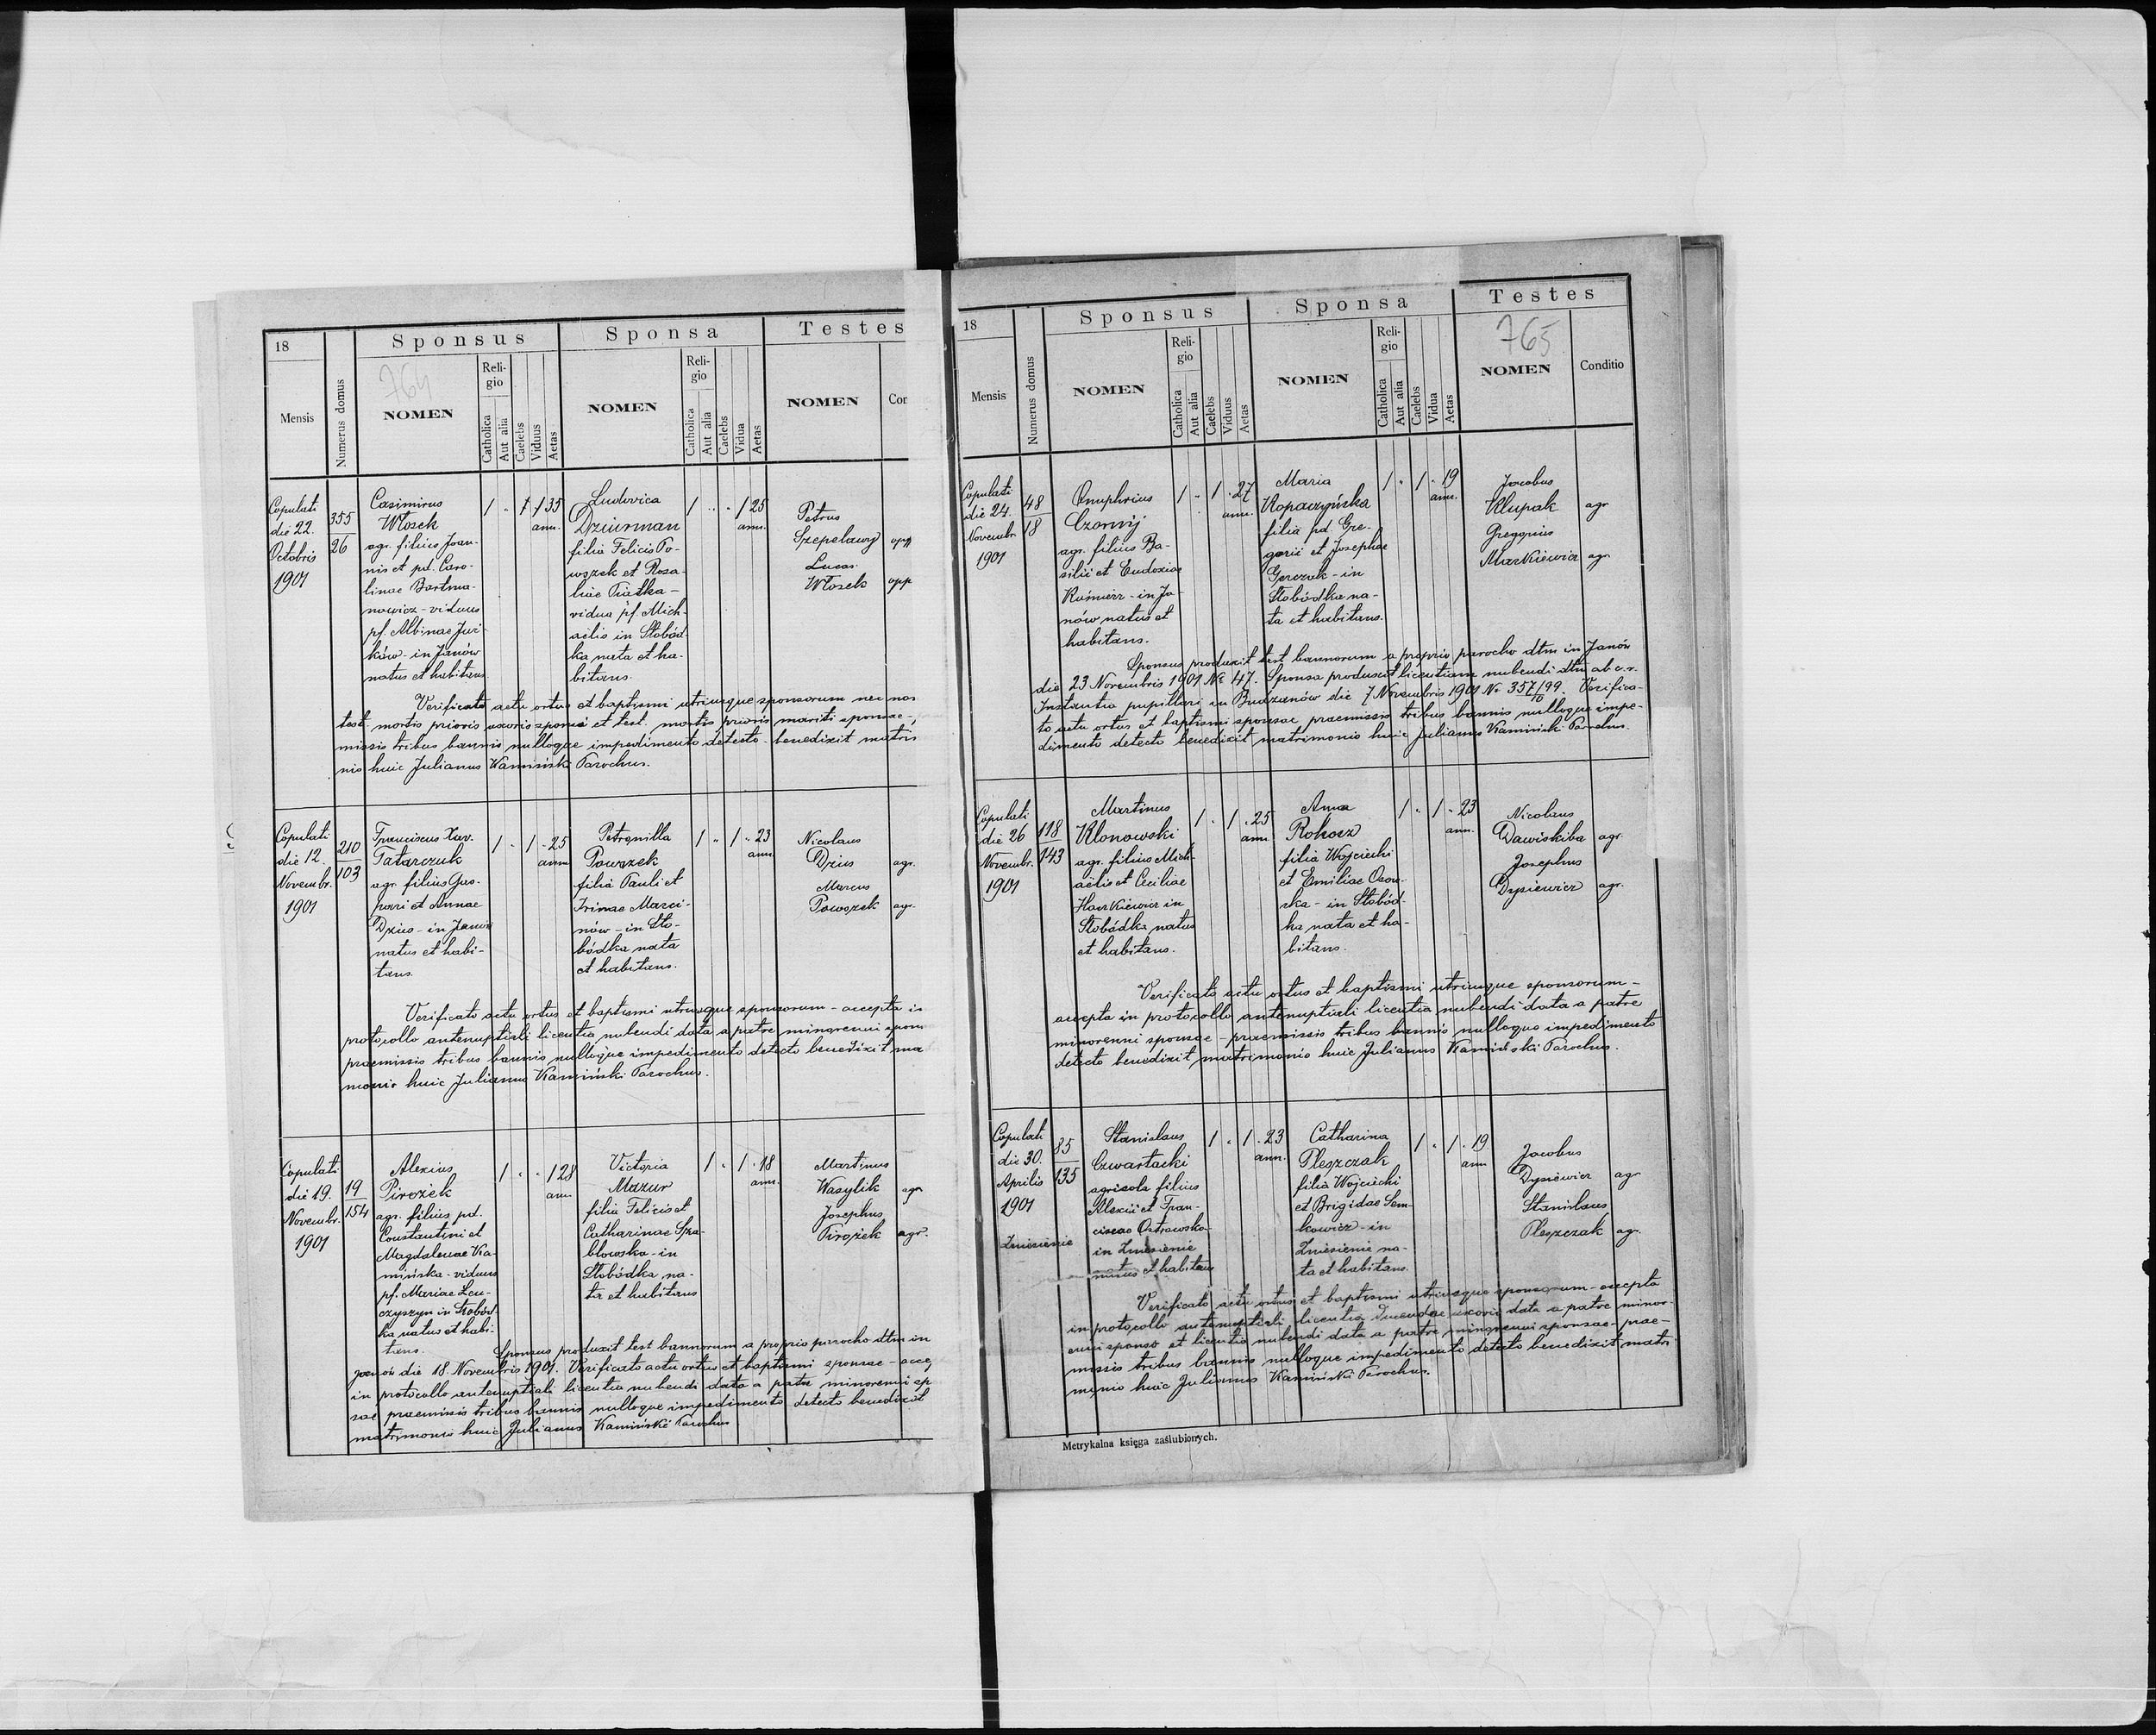 18
Mensis
Numerus domus
Sponsus
764
NOMEN
Religio
Catholica
Aut alia
Caelebs
Viduus
Aetas
Sponsa
NOMEN
Religio
Catholica
Aut alia
Caelebs
Vidua
Aetas
Testes
NOMEN
Con
Copulati
die 22.
Octobris
1901
355
26
Casimirus
Włosek
agr. filius Joan-
nis et pd. Caro-
linae Bartma-
nowicz - viduus
pf. Albinae Jur-
ków - in Janów
natus et habitans
1 " 1 1 35
ann.
Ludovica
Dziurman
filia Felicis Po-
woszek et Rosa-
liae Piatka -
vidua pf. Mich-
aelis in Słobód-
ka nata et ha-
bitans.
1 " " 1 25
ann.
Petrus
Szepelawy opp
Lucas
Włosek opp
Verificato actu ortus et baptismi utriusque sponsorum nec non
test. mortis prioris uxoris sponsi et test. mortis prioris mariti sponsae -,
missis tribus bannis nulloque impedimento detecto - benedixit matri
nio huic Julianus Kamiński Parochus.
Copulati
die 12.
Novembr.
1901
210
103
Franciscus Xav.
Tatarczuk
agr. filius Gas-
pari et Annae
Dzius - in Janów
natus et habi-
tans.
1 " 1 " 25
ann.
Petronilla
Powszek
filia Pauli et
Irinae Marci-
nów - in Sło-
bódka nata
et habitans.
1 " 1 " 23
ann.
Nicolaus
Dzius agr.
Marcus
Powszek agr.
Verificato actu ortus et baptismi utriusque sponsorum - accepta in
protocollo antenuptiali licentia nubendi data a patre minorenni spon
praemissis tribus bannis nulloque impedimento detecto benedixit ma
monio huic Julianus Kamiński Parochus.
Copulati
die 19.
Novembr.
1901
19
154
Alexius
Pirożek
agr. filius pd.
Constantini et
Magdalenae Ka-
mińska - viduus
pf. Mariae Leu-
czyszyn in Słobód-
ka natus et habi-
tans.
1 " " 1 28
ann.
Victoria
Mazur
filia Felicis et
Catharinae Sza-
blowska - in
Słobódka na-
ta et habitans
1 " 1 " 18
ann.
Martinus
Wasylik agr
Josephus
Pirożek agr.
Sponsus produxit test bannorum a proprio parocho dtm in
Janów die 18 Novembris 1901. Verificato actu ortus et baptismi sponsae - acce
in protocollo antenuptiali licentia nubendi data a patre minorenni sp
sae praemissis tribus bannis nulloque impedimento detecto benedixit
matrimonio huic Julianus Kamiński Parochus
18
Mensis
Numerus domus
Sponsus
NOMEN
Religio
Catholica
Aut alia
Caelebs
Viduus
Aetas
Sponsa
NOMEN
Religio
Catholica
Aut alia
Caelebs
Vidua
Aetas
Testes
765
NOMEN
Conditio
Copulati
die 24.
Novembr.
1901
48
18
Onuphrius
Czornyj
agr. filius Ba-
silii et Eudoxiae
Kuśnierz - in Ja-
nów natus et
habitans.
1 " 1 " 27
ann.
Maria
Kopaczyńska
filia pd. Gre-
gorii et Josephae
Gerczuk - in
Słobódka na-
ta et habitans.
1 " 1 " 19
ann.
Jacobus
Klupak agr
Gregorius
Markiewicz agr.
Sponsus produxit test bannorum a proprio parocho dtm in Janów
die 23 Novembris 1901 № 47. Sponsa produxit licentiam nubendi dtm ab c. r.
Instantia pupillari in Budzanów die 7 Novembris 1901 № 357/99. Verifica-
to actu ortus et baptismi sponsae praemissis tribus bannis nulloque impe-
dimento detecto benedixit matrimonio huic Julianus Kamiński Parochus.
Copulati
die 26
Novembr.
1901
118
143
Martinus
Klonowski
agr. filius Mich-
aelis et Ceciliae
Harkiewicz in
Słobódka natus
et habitans.
1 " 1 " 25
ann.
Anna
Rokosz
filia Wojciechi
et Emiliae Osow-
ska - in Słobód-
ka nata et ha-
bitans.
1 " 1 " 23
ann.
Nicolaus
Dawiskiba agr.
Josephus
Dysiewicz agr.
Verificato actu ortus et baptismi utriusque sponsorum -
accepta in protocollo antenuptiali licentia nubendi data a patre
minorenni sponsae - praemissis tribus bannis nulloque impedimento
detecto benedixit matrimonio huic Julianus Kamiński Parochus.
Copulati
die 30.
Aprilis
1901
Zniesienie
85
135
Stanislaus
Czwartacki
agricola filius
Alexii et Fran-
ciscae Ostrowska
in Zniesienie
natus et habitans
1 " 1 " 23
ann.
Catharina
Pleszczak
filia Wojciechi
et Brigidae Sem-
kowicz - in
Zniesienie na-
ta et habitans.
1 " 1 " 19
ann
Jacobus
Dysiewicz agr
Stanislaus
Pleszczak agr.
Verificato actu ortus et baptismi utriusque sponsorum - accepta
in protocollo antenuptiali licentia ducendae uxoris data a patre minor-
enni sponso et licentia nubendi data a patre minorenni sponsae - prae-
missis tribus bannis nulloque impedimento detecto benedixit matri
monio huic Julianus Kamiński Parochus.
Metrykalna księga zaślubionych.